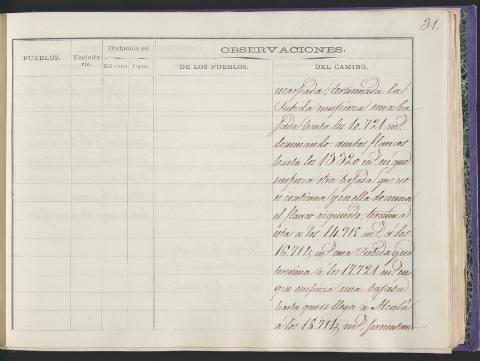 31.
PUEBLOS.
Vecinda-
rio.
Distancia en
Kilóms
Legs.
OBSERVACIONES.
DE LOS PUEBLOS.
DEL CAMINO.
escarpada; terminada la
subida empieza una ba-
jada hasta los 10.721 m.s
dominando ambos flancos
hasta los 13320 m.s en que
empieza otra bajada que no
es continua y en ella domina
el flanco izquierdo, termina
esta á los 14.715 m.s á los
16.714 m.s una subida que
termina á los 17.721 m.s en
que empieza una bajada
hasta que se llega á Alcalá
á los 18.714 m.s